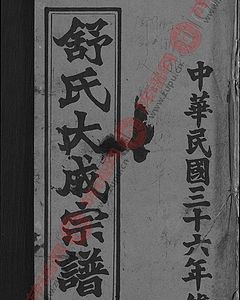 中華民國三十六年
舒氏大成宗譜